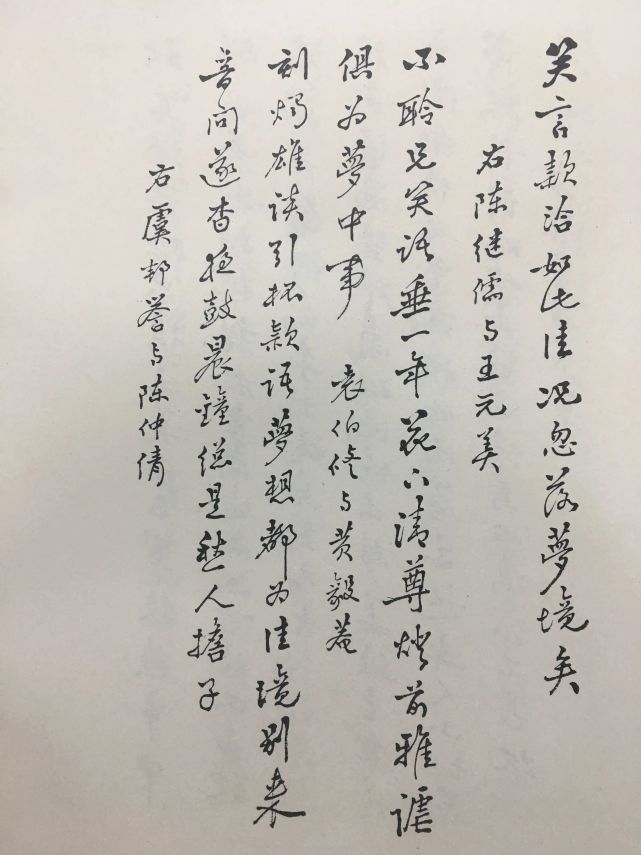 笑言款洽如此佳况忽落夢境矣
右陈继儒与王元美
不聆兄笑语垂一年花下清尊烛前雅谑
俱为夢中事 袁伯修与黄毅菴
刻烛雄谈引杯款语夢想都为佳境别来
音问遂杳夜鼓晨鐘総是愁人擔子
右虞邦誉与陈仲倩